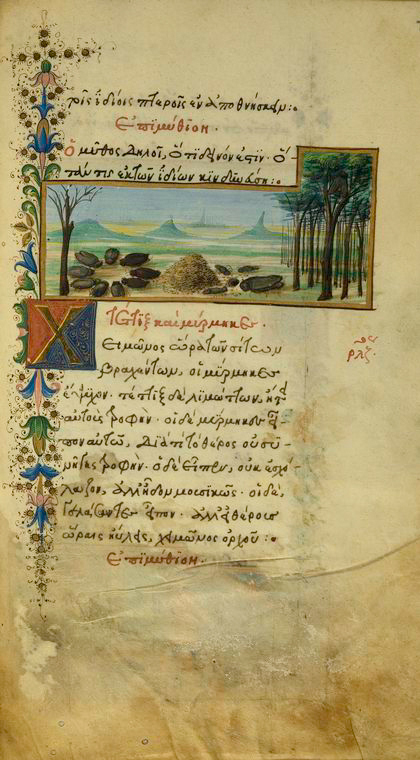 τοῖς ἰδίοις πτεροῖς ἐναποθνήσκειν:
Ἐπιμύθιον.
Ὁ μῦθος δηλοῖ, ὅτι δεινόν ἐστιν. ὅ-
ταν τις ἐκ τῶν ἰδίων κινδυνεύσῃ:
Τέττιξ καὶ μύρμηκες.
Χειμῶνος ὥρᾳ τῶν σίτων
βραχέντων, οἱ μύρμηκες
ἔψυχον. τέττιξ δὲ λιμώττων, ᾔτει
αὐτοὺς τροφήν. οἱ δὲ μύρμηκες εἶ-
πον αὐτῷ, διὰ τί τὸ θέρος οὐ συ-
νῆγες τροφήν. ὁ δὲ εἶπεν, οὐκ ἐσχό-
λαζον, ἀλλ' ᾖδον μουσικῶς. οἱ δὲ,
γελάσαντες εἶπον. ἀλλ' εἰ θέρους
ὥραις ηὔλεις, χειμῶνος ὀρχοῦ:
Ἐπιμύθιον.
ρλζ.